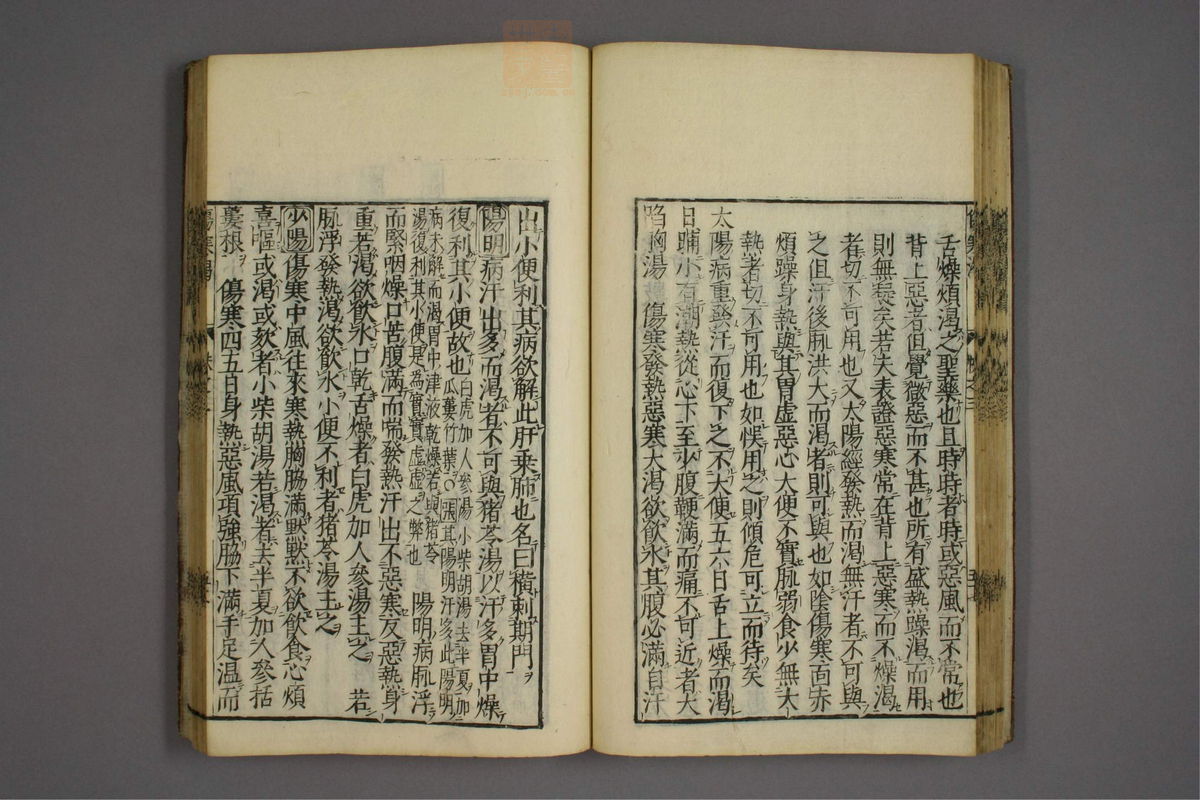 舌燥煩渴之聖藥也且時時者時或惡風而不常也
背上惡者但覺微惡而不甚也所有盛熱躁渴而用
則無疑矣若夫表證惡寒常在背上惡寒而不燥渴
者切不可用也又太陽經發熱而渴無汗者不可與
之但汗後脈洪大而渴者則可與也如陰傷寒面赤
煩躁身熱與其胃虛惡心大便不實脈弱食少無大
熱者切不可用也如悞用之則傾危可立而待矣
太陽病重發汗而復下之不大便五六日舌上燥而渴
日晡小有潮熱從心下至少腹鞕滿而痛不可近者大
陷胸湯 傷寒發熱惡寒大渴欲飲水其腹必滿自汗
出小便利其病欲解此肝乗肺也名曰橫刺期門
陽明病汗出多而渴者不可與猪苓湯以汗多胃中燥
復利其小便故也白虎加人參湯小柴胡湯去半夏加
瓜蔞竹葉○張其陽明汗多此陽明
病未解而渴胃中津液乾燥若與猪苓
湯復利其小便是為實實虛虛之弊也 陽明病脈浮
而緊咽燥口苦腹滿而喘發熱汗出不惡寒反惡熱身
重若渴欲飲水口乾舌燥者白虎加人參湯主之 若
脈浮發熱渴欲飲水小便不利者猪苓湯主之
少陽傷寒中風往來寒熱胸脇滿默默不欲飲食心煩
喜嘔或渴或欬者小柴胡湯若渴者去半夏加人參括
蔞根 傷寒四五日身熱惡風項強脇下滿手足溫而